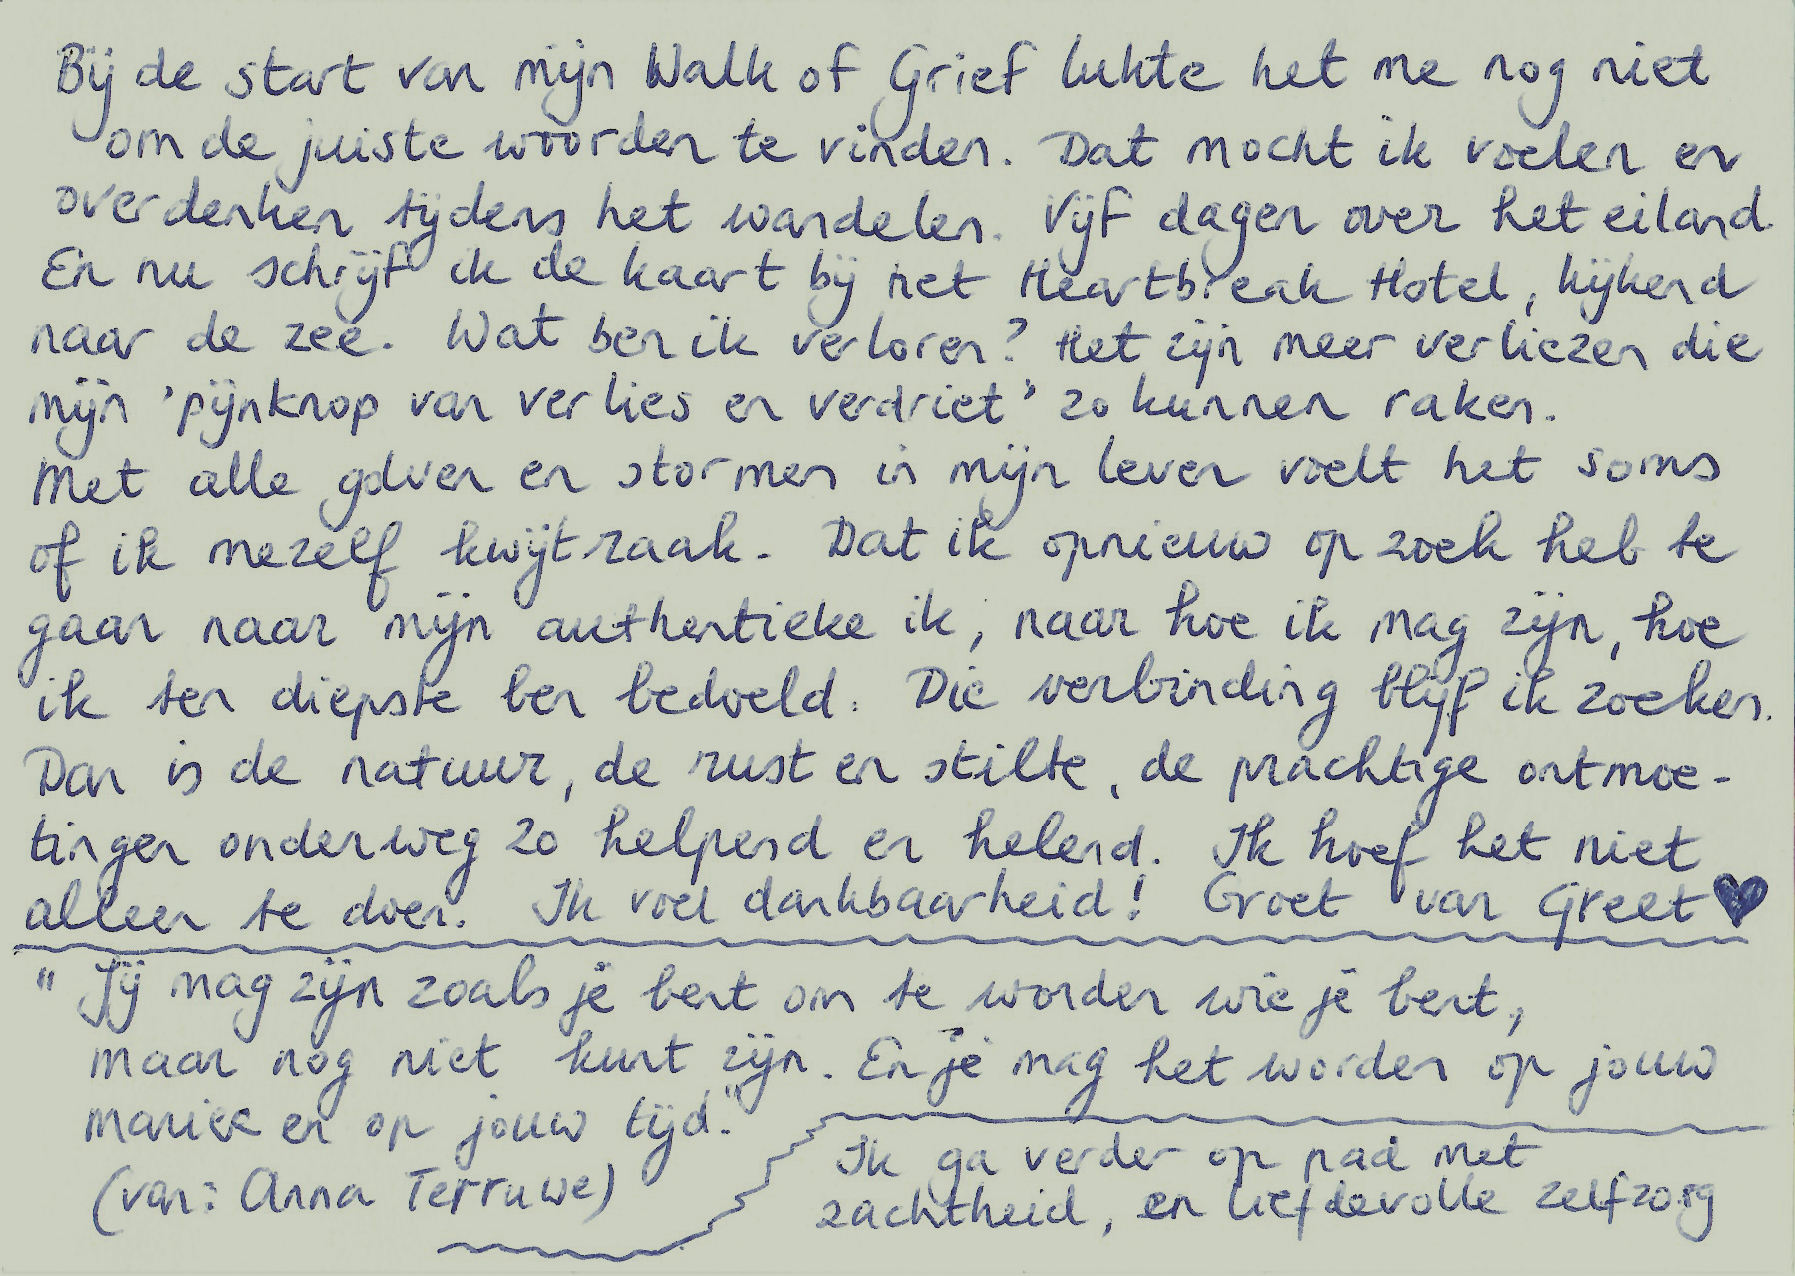 Bij de start van mijn Walk of Grief lukte het me nog niet
om de juiste woorden te vinden. Dat mocht ik voelen en
overdenken tijdens het wandelen. Vijf dagen over het eiland.
En nu schrijf ik de kaart bij het Heartbreak Hotel, kijkend
naar de zee. Wat ben ik verloren? Het zijn meer verliezen die
mijn 'pijnknop van verlies en verdriet' zo kunnen raken.
Met alle golven en stormen in mijn leven voelt het soms
of ik mezelf kwijtraak. Dat ik opnieuw op zoek heb te
gaan naar mijn authentieke ik, naar hoe ik mag zijn, hoe
ik ten diepste ben bedoeld. Die verbinding blijf ik zoeken.
Dan is de natuur, de rust en stilte, de prachtige ontmoe-
tingen onderweg zo helpend en helend. Ik hoef het niet
alleen te doen. Ik voel dankbaarheid! Groet van Greet ♥
"Jij mag zijn zoals je bent om te worden wie je bent,
maar nog niet kunt zijn. En je mag het worden op jouw
manier en op jouw tijd."
(van: Anna Terruwe)
Ik ga verder op pad met
zachtheid, en liefdevolle zelfzorg